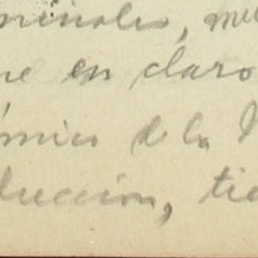 minales, me
ne en claro
ómico de la
ducción, tie